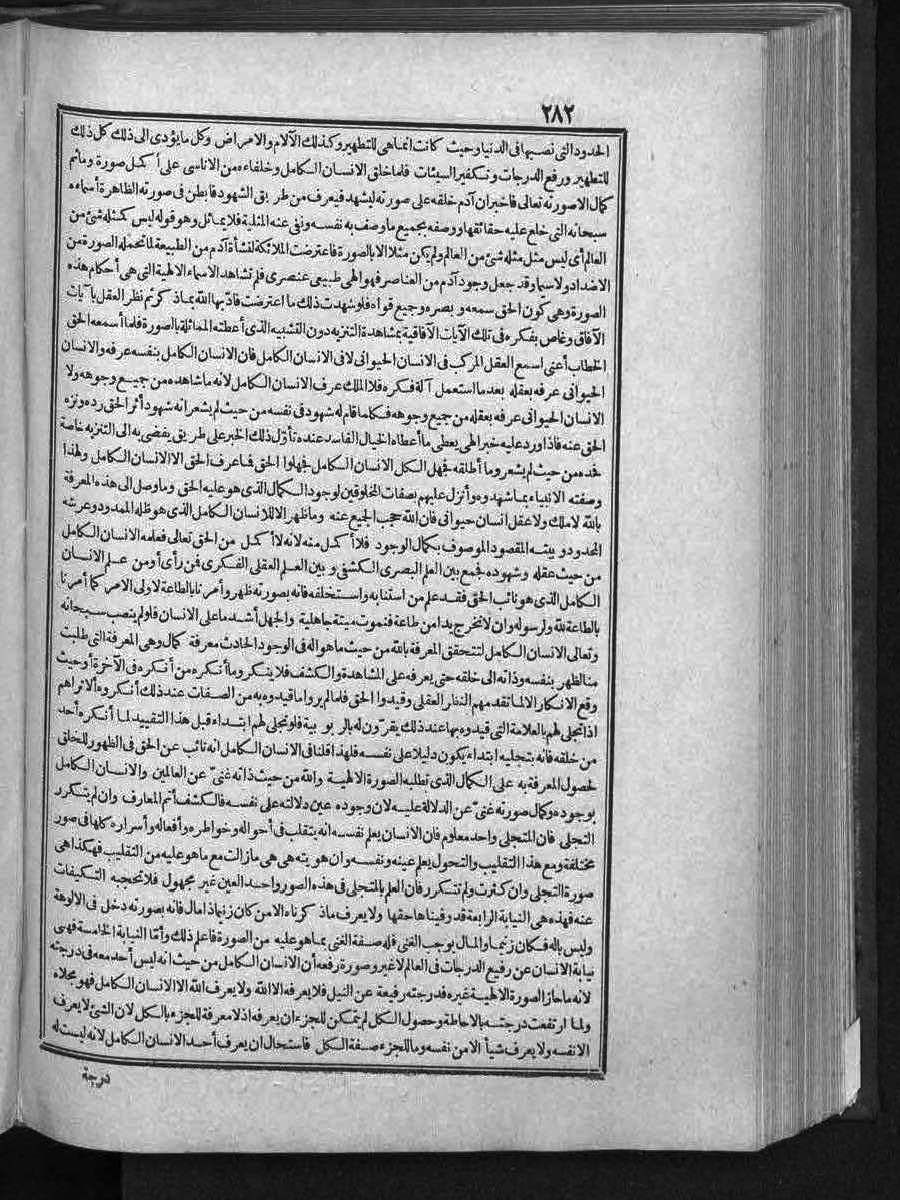 ٢٨٢
الحدود التى نصبها فى الدنيا وحيث كانت انما هى للتطهير وكذلك الآلام والامراض وكل ما يؤدى الى ذلك كل ذلك
للتطهير ورفع الدرجات وتكفير السيئات فلما خلق الانسان الكامل وخلفاءه من الاناسى على أكمل صورة وما ثم
كمال الا صورته تعالى فاخبر ان آدم خلقه على صورته ليشهد فيعرف من طريق الشهود فابطن فى صورته الظاهرة أسماءه
سبحانه التى خلع عليه حقائقها ووصفه بجميع ما وصف به نفسه ونفى عنه المثلية فلا يماثل وهو قوله ليس كمثله شئ من
العالم أى ليس مثل مثله شئ من العالم ولم يكن مثلا الا بالصورة فاعترضت الملائكة لنشأة آدم من الطبيعة لما تحمله الصورة من
الاضداد ولا سيما وقد جعل وجود آدم من العناصر فهو الهى طبيعى عنصرى فلم تشاهد الاسماء الالهية التى هى أحكام هذه
الصورة وهى كون الحق سمعه وبصره وجميع قواه فلو شهدت ذلك ما اعترضت فادّبها الله بما ذكر ثم نظر العقل بآيات
الآفاق وغاص بفكره فى تلك الآيات الآفاقية بمشاهدة التنزيه دون التشبيه الذى أعطته المماثلة بالصورة فلما أسمعه الحق
الخطاب أعنى اسمع العقل المركب فى الانسان الحيوانى لا فى الانسان الكامل فان الانسان الكامل بنفسه عرفه والانسان
الحيوانى عرفه بعقله بعد ما استعمل آلة فكره فلا الملك عرف الانسان الكامل لانه ما شاهده من جميع وجوهه ولا
الانسان الحيوانى عرفه بعقله من جميع وجوهه فكلما قام له شهود فى نفسه من حيث لم يشعر انه شهود أثر الحق رده ونزه
الحق عنه فاذا ورد عليه خبر الهى يعطى ما أعطاه الخيال الفاسد عنده تأوّل ذلك الخبر على طريق يفضى به الى التنزيه خاصة
فحده من حيث لم يشعر وما أطلقه فجهل الكل الانسان الكامل فجهلوا الحق فما عرف الحق الا الانسان الكامل ولهذا
وصفته الانبياء بما شهدوه وأنزل عليهم بصفات المخلوقين لوجود الكمال الذى هو عليه الحق وما وصل الى هذه المعرفة
بالله لا ملك ولا عقل انسان حيوانى فان الله حجب الجميع عنه وما ظهر الا للانسان الكامل الذى هو ظله الممدود وعرشه
المحدود وبيته المقصود الموصوف بكمال الوجود فلا أكمل منه لانه لا أكمل من الحق تعالى فعلمه الانسان الكامل
من حيث عقله وشهوده فجمع بين العلم البصرى الكشفى وبين العلم العقلى الفكرى فمن رأى أو من علم الانسان
الكامل الذى هو نائب الحق فقد علم من استنابه واستخلفه فانه بصورته ظهر وأمرنا بالطاعة لاولى الامر كما أمرنا
بالطاعة لله ولرسوله وان لا نخرج يدا من طاعة فنموت ميتة جاهلية والجهل أشد ما على الانسان فلو لم ينصب سبحانه
وتعالى الانسان الكامل لتتحقق المعرفة بالله من حيث ما هو اله فى الوجود الحادث معرفة كمال وهى المعرفة التى طلبت
منا لظهر بنفسه وذاته الى خلقه حتى يعرفه على المشاهدة والكشف فلا ينكر وما أنكره من أنكره فى الآخرة أو حيث
وقع الانكار الا لما تقدمهم النظر العقلى وقيدوا الحق فلما لم يروا ما قيدوه به من الصفات عند ذلك أنكروه ألا تراهم
اذا تجلى لهم بالعلامة التى قيدوه بها عند ذلك يقرّون له بالربوبية فلو تجلى لهم ابتداء قبل هذا التقييد لما أنكره أحد
من خلقه فانه بتجليه ابتداء يكون دليلا على نفسه فلهذا قلنا فى الانسان الكامل انه نائب عن الحق فى الظهور للخلق
لحصول المعرفة به على الكمال الذى تطلبه الصورة الالهية والله من حيث ذاته غنىّ عن العالمين والانسان الكامل
بوجوده وكمال صورته غنىّ عن الدلالة عليه لان وجوده عين دلالته على نفسه فالكشف أتم المعارف وان لم يتكرر
التجلى فان المتجلى واحد معلوم فان الانسان يعلم نفسه انه يتقلب فى أحواله وخواطره وأفعاله وأسراره كلها فى صور
مختلفة ومع هذا التقليب والتحول يعلم عينه ونفسه وان هويته هى هى ما زالت مع ما هو عليه من التقليب فهكذا هى
صورة التجلى وان كثرت ولم تتكرر فان العلم بالمتجلى فى هذه الصور واحد العين غير مجهول فلا تحجبه التكيفات
عنه فهذه هى النيابة الرابعة قد وفيناها حقها ولا يعرف ما ذكرناه الا من كان زنيما ذا مال فانه بصورته دخل فى الالوهة
وليس باله فكان زنيما والمال يوجب الغنى فله صفة الغنى بما هو عليه من الصورة فاعلم ذلك وأمّا النيابة الخامسة فهى
نيابة الانسان عن رفيع الدرجات فى العالم لا غير وصورة رفعه أن الانسان الكامل من حيث انه ليس أحد معه فى درجته
لانه ما حاز الصورة الالهية غيره فدرجته رفيعة عن النيل فلا يعرفه الا الله ولا يعرف الله الا الانسان الكامل فهو مجلاه
ولما ارتفعت درجته بالاحاطة وحصول الكل لم تتمكن للجزء ان يعرفه اذ لا معرفة للجزء بالكل لان الشئ لا يعرف
الا نفسه ولا يعرف شيأ الا من نفسه وما للجزء صفة الكل فاستحال ان يعرف أحد الانسان الكامل لانه ليست له
درجة